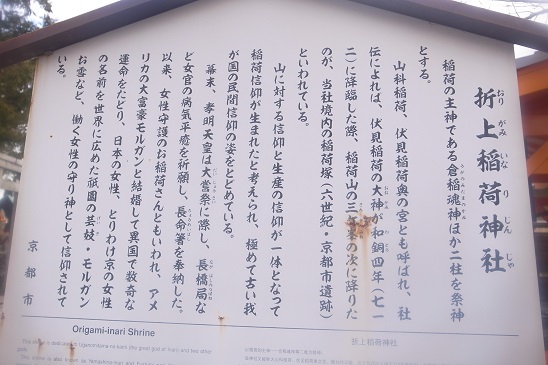 折上稲荷神社
おりがみいなりじんじゃ
稲荷の主神である倉稲魂神ほか二柱を祭神
とする。
山科稲荷、伏見稲荷奥の宮とも呼ばれ、社
伝によれば、伏見稲荷の大神が和銅四年（七一
一）に降臨した際、稲荷山の三ヶ峯の次に降りた
のが、当社境内の稲荷塚（六世紀・京都市遺跡）
といわれている。
山に対する信仰と生産の信仰が一体となって
稲荷信仰が生まれたと考えられ、極めて古い我
が国の民間信仰の姿をとどめている。
幕末、孝明天皇は大嘗祭に際し、長橋局な
ど女官の病気平癒を祈願し、長命箸を奉納した。
以来、女性守護のお稲荷さんともいわれ、アメ
リカの大富豪モルガンと結婚して異国で数奇な
運命をたどり、日本の女性、とりわけ京の女性
の名前を世界に広めた祇園の芸妓・モルガン
お雪など、働く女性の守り神として信仰されて
いる。
京都市
Origami-inari Shrine
折上稲荷神社